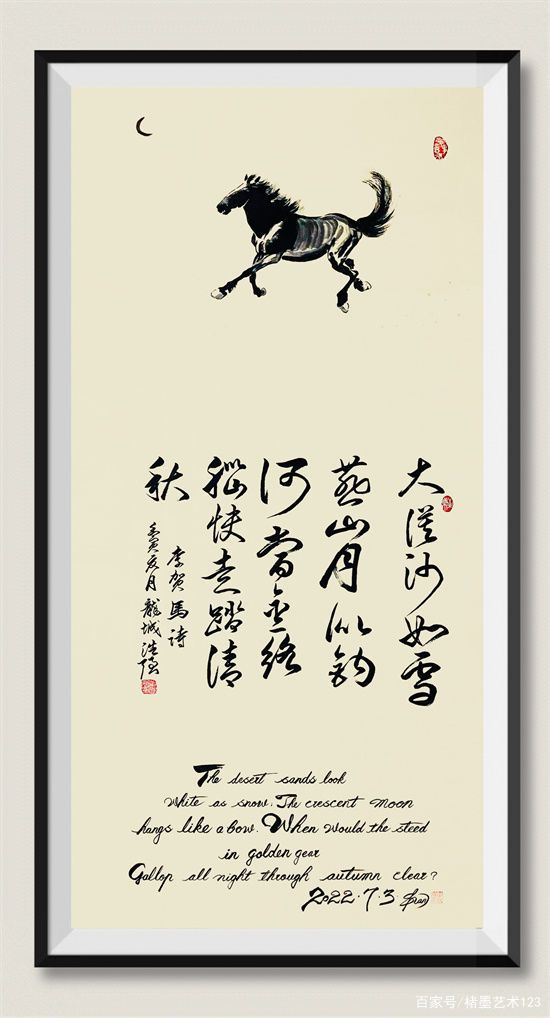 大漠沙如雪
燕山月似钩
何當金络
腦快走踏清
秋
李贺馬诗
壬寅亥月龍城
The desert sands look
White as snow. The crescent moon
hangs like a bow. When would the steed
in golden gear
Gallop all night through autumn clear?
2022.7.3
百家号/楮墨艺术123